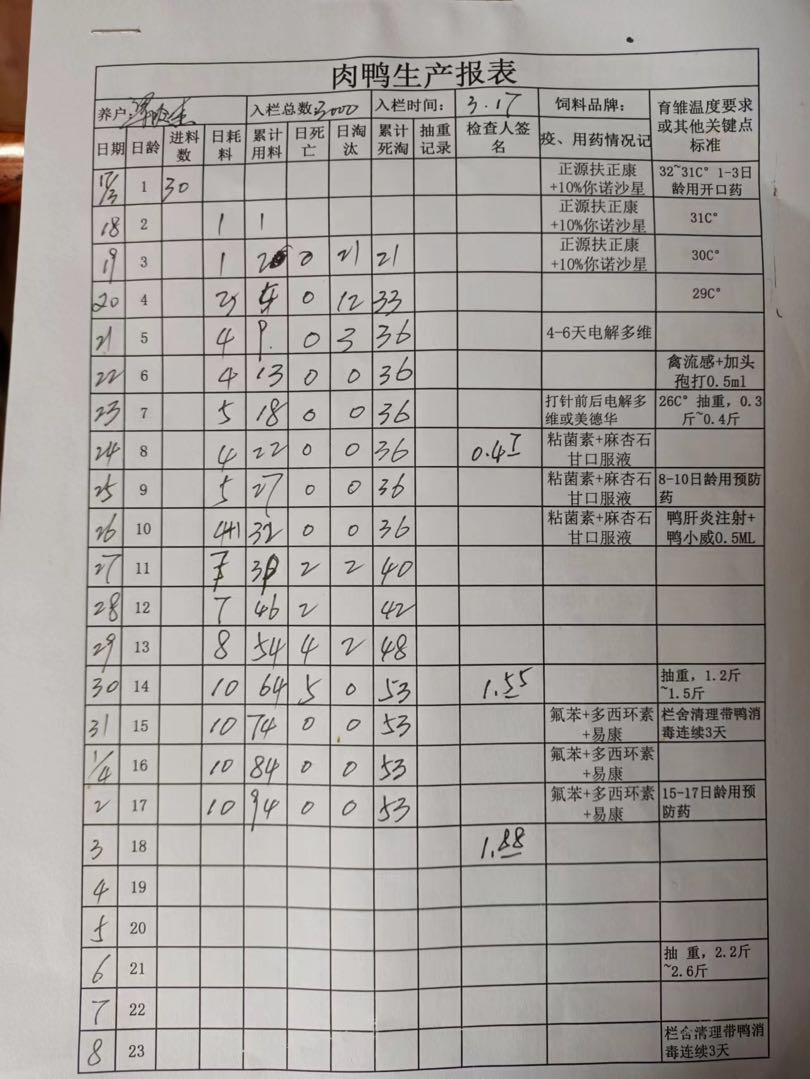 肉鸭生产报表
养户: 入栏总数: 3000 入栏时间: 3.17 饲料品牌: 育雏温度要求或其他关键点标准
日期 日龄 进料数 日耗料 累计用料 日死亡 日淘汰 累计死淘 抽重记录 检查人签名 疫、用药情况记
17/3 1 30 正源扶正康+10%你诺沙星 32~31C° 1-3日龄用开口药
18 2 1 1 正源扶正康+10%你诺沙星 31C°
19 3 1 2 0 21 21 正源扶正康+10%你诺沙星 30C°
20 4 4 0 12 33 29C°
21 5 4 9 0 3 36 4-6天电解多维
22 6 4 13 0 0 36 禽流感+加头孢打0.5ml
23 7 5 18 0 0 36 打针前后电解多维或美德华 26C° 抽重，0.3斤~0.4斤
24 8 4 22 0 0 36 粘菌素+麻杏石甘口服液
25 9 5 27 0 0 36 粘菌素+麻杏石甘口服液 8-10日龄用预防药
26 10 4+1 32 0 0 36 粘菌素+麻杏石甘口服液 鸭肝炎注射+鸭小威0.5ML
27 11 7 39 2 2 40
28 12 7 46 2 42
29 13 8 54 4 2 48
30 14 10 64 5 0 53 1.55 抽重，1.2斤~1.5斤
31 15 10 74 0 0 53 氟苯+多西环素+易康 栏舍清理带鸭消毒连续3天
1/4 16 10 84 0 0 53 氟苯+多西环素+易康
2 17 10 94 0 0 53 氟苯+多西环素+易康 15-17日龄用预防药
3 18 1.88
4 19
5 20
6 21 抽 重，2.2斤~2.6斤
7 22
8 23 栏舍清理带鸭消毒连续3天